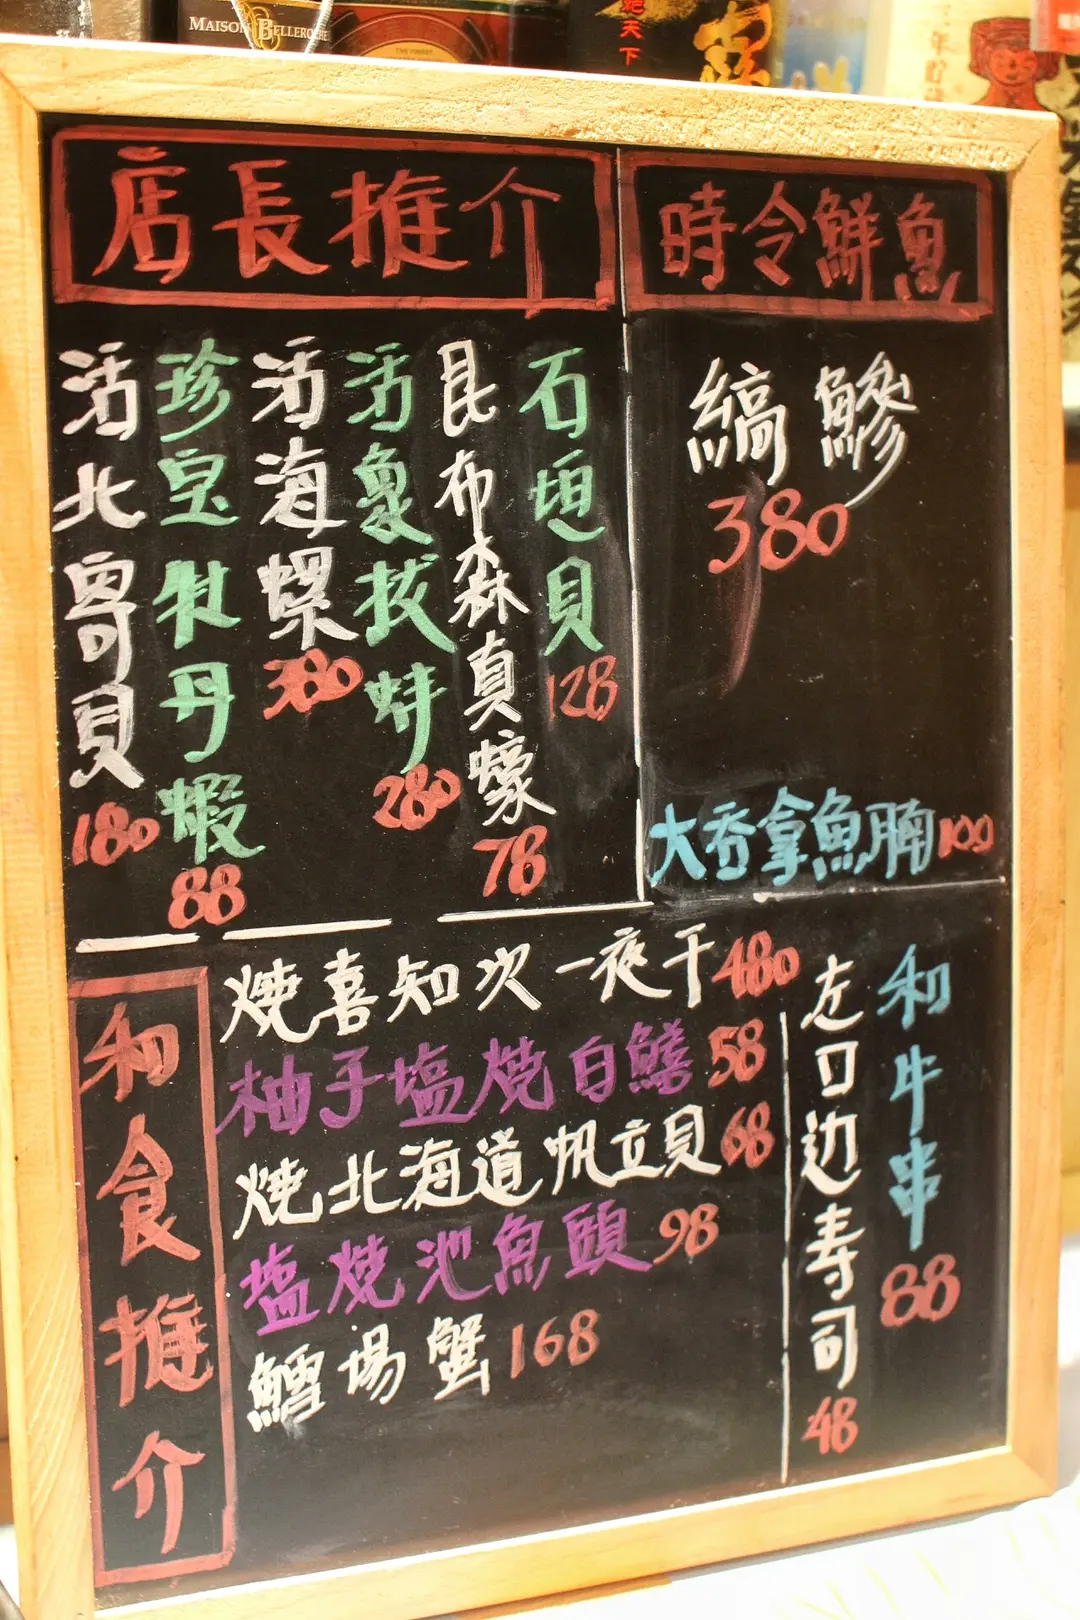 MAISON BELLEROCHE
店長推介
時令鮮魚
活北寄貝
180
珍宝牡丹蝦
88
活海螺
380
活象拔蚌
280
昆布森真蠔
78
石垣貝
128
縞鰺
380
大吞拿魚腩100
和食推介
燒喜知次一夜干480
柚子塩燒白鱔58
燒北海道帆立貝68
塩燒池魚頭98
鱈場蟹168
左口边寿司
48
和牛串
88